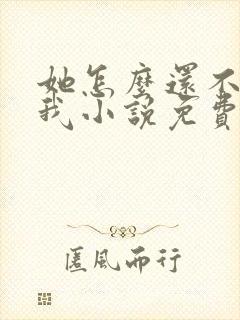 她怎麼還不
我小說免費
匿風而行